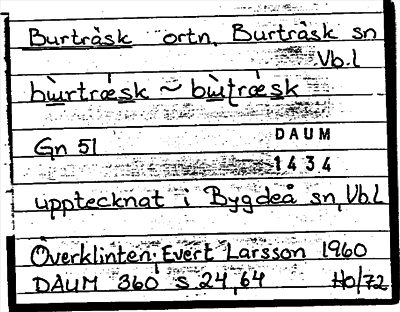 Burträsk ortn. Burträsk sn
Vb.l
bùrtrǽsk ~ bùʈrǽsk
Gn 51
DAUM
1434
upptecknat i Bygdeå sn, Vb.l
Överklinten; Evert Larsson 1960
DAUM 360 s 24, 64 Ho/72